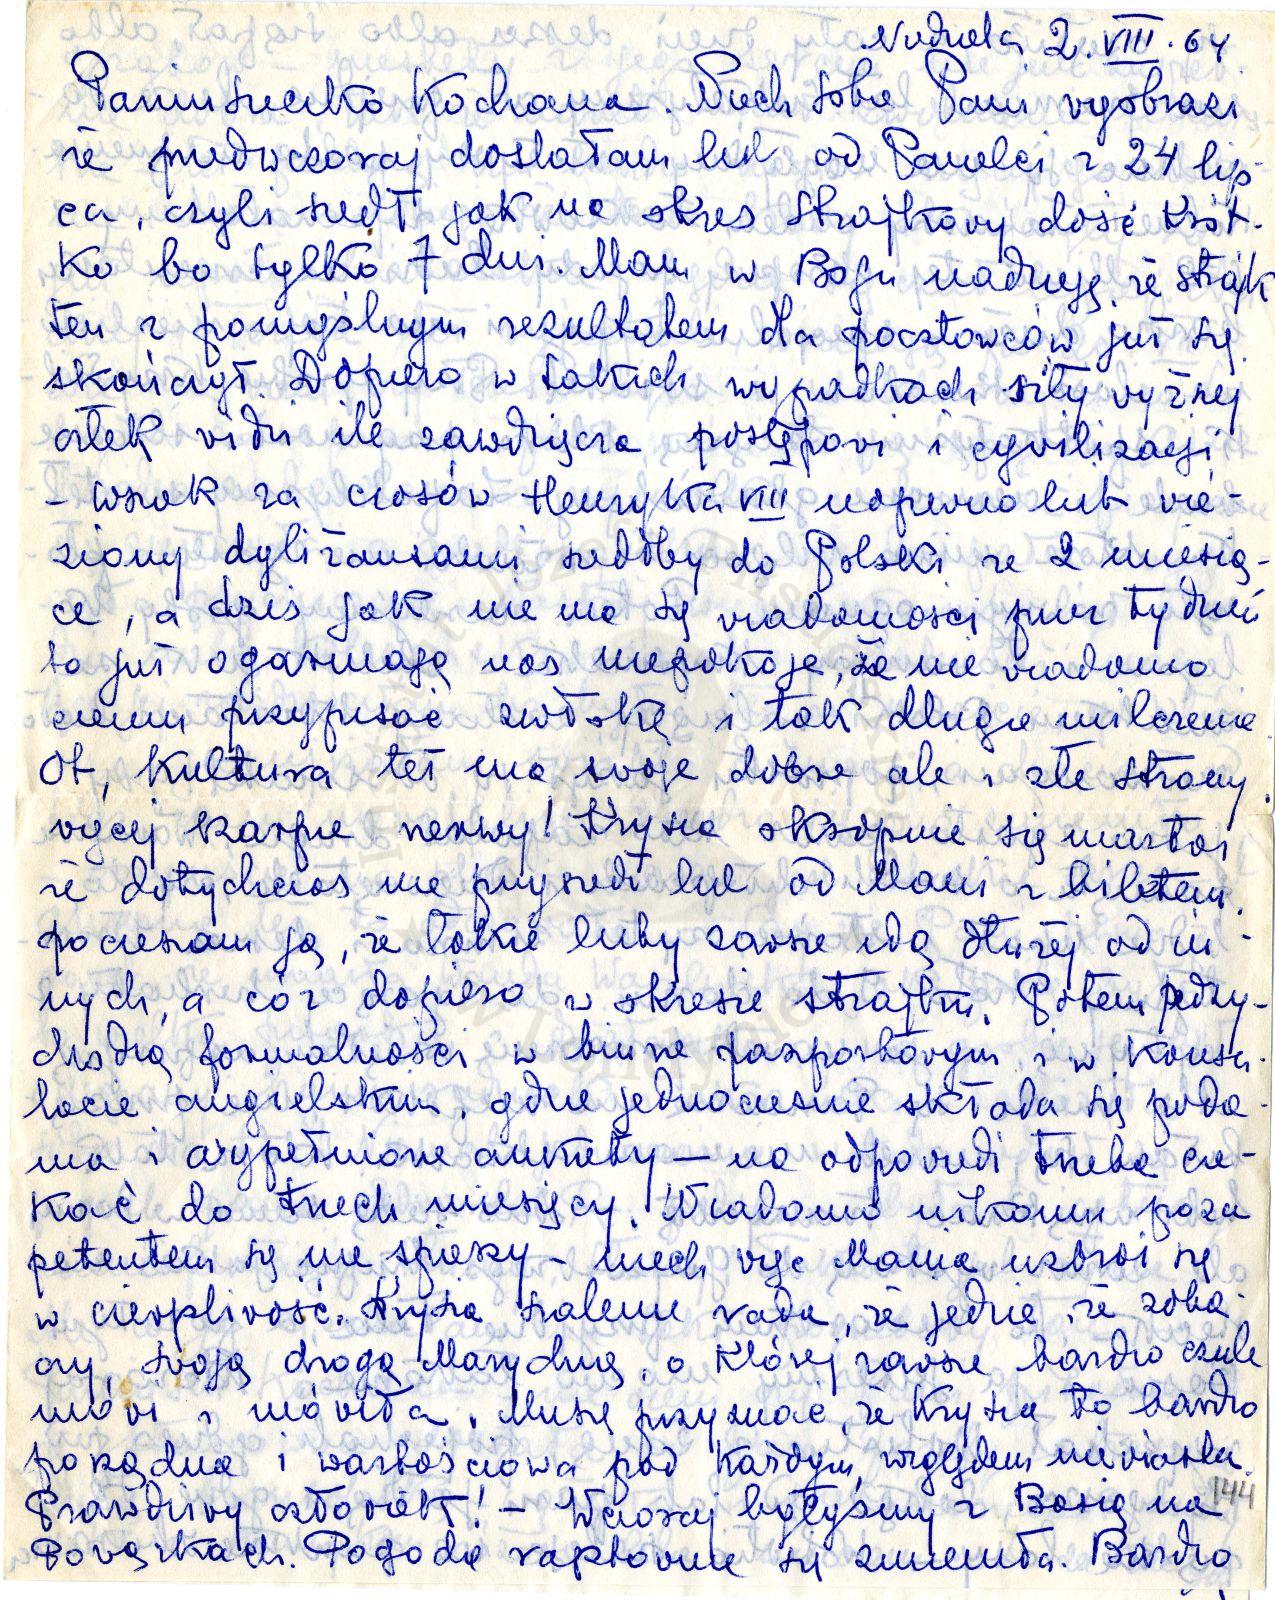 Niedziela 2.VIII.64
Paniusieczko Kochana. Niech sobie Pani wyobrazi
że przedwczoraj dostałam list od Panelci z 24 lip-
ca, czyli szedł jak na okres strajkowy dość krót-
ko bo tylko 7 dni. Mam w Bogu nadzieję, że strajk
ten z pomyślnym rezultatem dla pocztowców już się
skończył. Dopiero w takich wypadkach siły wyższej
człek widzi ile zawdzięcza postępowi i cywilizacji
- wszak za czasów Henryka VIII napewno list wie-
ziony dyliżansami szedłby do Polski ze 2 miesią-
ce, a dziś jak nie ma się wiadomości przez tydzień
to już ogarniają nas niepokoje, że nie wiadomo
czemu przypisać zwłokę i tak długie milczenie.
Ot, kultura też ma swoje dobre ale i złe strony,
więcej szarpie nerwy! Krysia okropnie się martwi
że dotychczas nie przyszedł list od Mani z biletem.
pocieszam ją, że takie listy zawsze idą dłużej od in-
nych, a cóż dopiero w okresie strajku. Potem przy-
chodzą formalności w biurze paszportowym i w konsu-
lacie angielskim, gdzie jednocześnie składa się poda-
nia i wypełnione ankiety — na odpowiedź trzeba cze-
kać do trzech miesięcy. Wiadomo nikomu poza
petentem się nie śpieszy - niech więc Mania uzbroi się
w cierpliwość. Krysia szalenie rada, że jedzie, że zoba-
czy swoją drogą Marydzię, o której zawsze bardzo czule
mówi i mówiła. Muszę przyznać, że Krysia to bardzo
porządna i wartościowa pod każdym względem niewiasta.
Prawdziwy człowiek! - Wczoraj byłyśmy z Basią na
Powązkach. Pogoda raptownie się zmieniła. Bardzo
144